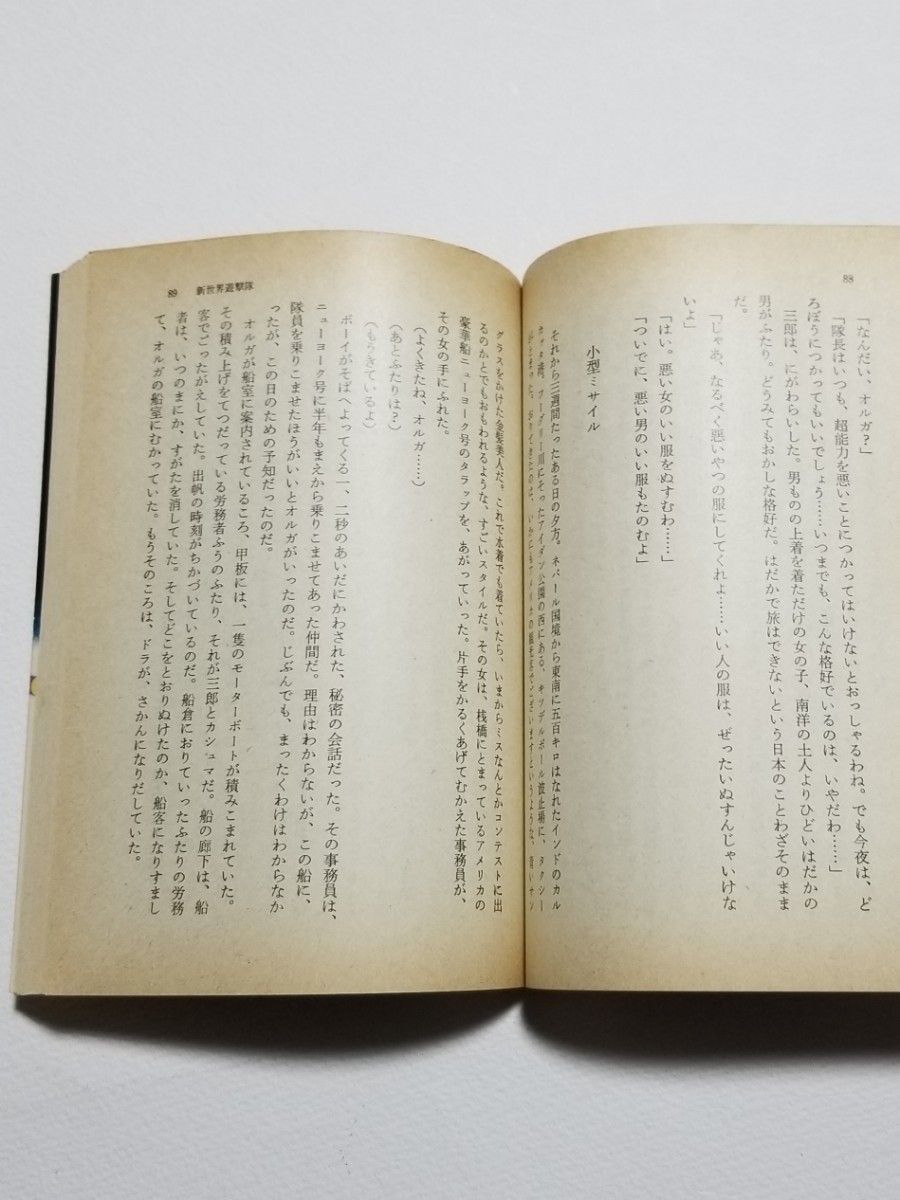 88
「なんだい、オルガ？」
「隊長はいつも、超能力を悪いことにつかってはいけないとおっしゃるわね。でも今夜は、ど
ろぼうにつかってもいいでしょう……いつまでも、こんな格好でいるのは、いやだわ……」
三郎は、にがわらいした。男ものの上着を着ただけの女の子、南洋の土人よりひどいはだかの
男がふたり。どうみてもおかしな格好だ。はだかで旅はできないという日本のことわざそのまま
だ。
「じゃあ、なるべく悪いやつの服にしてくれよ……いい人の服は、ぜったいぬすんじゃいけな
いよ」
「はい。悪い女のいい服をぬすむわ……」
「ついでに、悪い男のいい服もたのむよ」
小型ミサイル
それから三週間たったある日の夕方。ネパール国境から東南に五百キロはなれたインドのカル
カッタ港、フーグリー川にそったアイダン公園の西にある、キッデルポール波止場に、タクシー
がとまった。おりてきたのは、いかにもアメリカの観光客でございますというような、青いサン
89　新世界遊撃隊
グラスをかけた金髪美人だ。これで水着でも着ていたら、いまからミスなんとかコンテストに出
るのかとでもおもわれるような、すごいスタイルだ。その女は、桟橋にとまっているアメリカの
豪華船ニューヨーク号のタラップを、あがっていった。片手をかるくあげてむかえた事務員が、
その女の手にふれた。
（よくきたね、オルガ……）
（あとふたりは？）
（もうきているよ）
ボーイがそばへよってくる一、二秒のあいだにかわされた、秘密の会話だった。その事務員は、
ニューヨーク号に半年もまえから乗りこませてあった仲間だ。理由はわからないが、この船に、
隊員を乗りこませたほうがいいとオルガがいったのだ。じぶんでも、まったくわけはわからなか
ったが、この日のための予知だったのだ。
オルガが船室に案内されているころ、甲板には、一隻のモーターボートが積みこまれていた。
その積み上げをてつだっている労務者ふうのふたり、それが三郎とカシュマだ。船の廊下は、船
客でごったがえしていた。出帆の時刻がちかづいているのだ。船倉におりていったふたりの労務
者は、いつのまにか、すがたを消していた。そしてどこをとおりぬけたのか、船客になりすまし
て、オルガの船室にむかっていた。もうそのころは、ドラが、さかんになりだしていた。